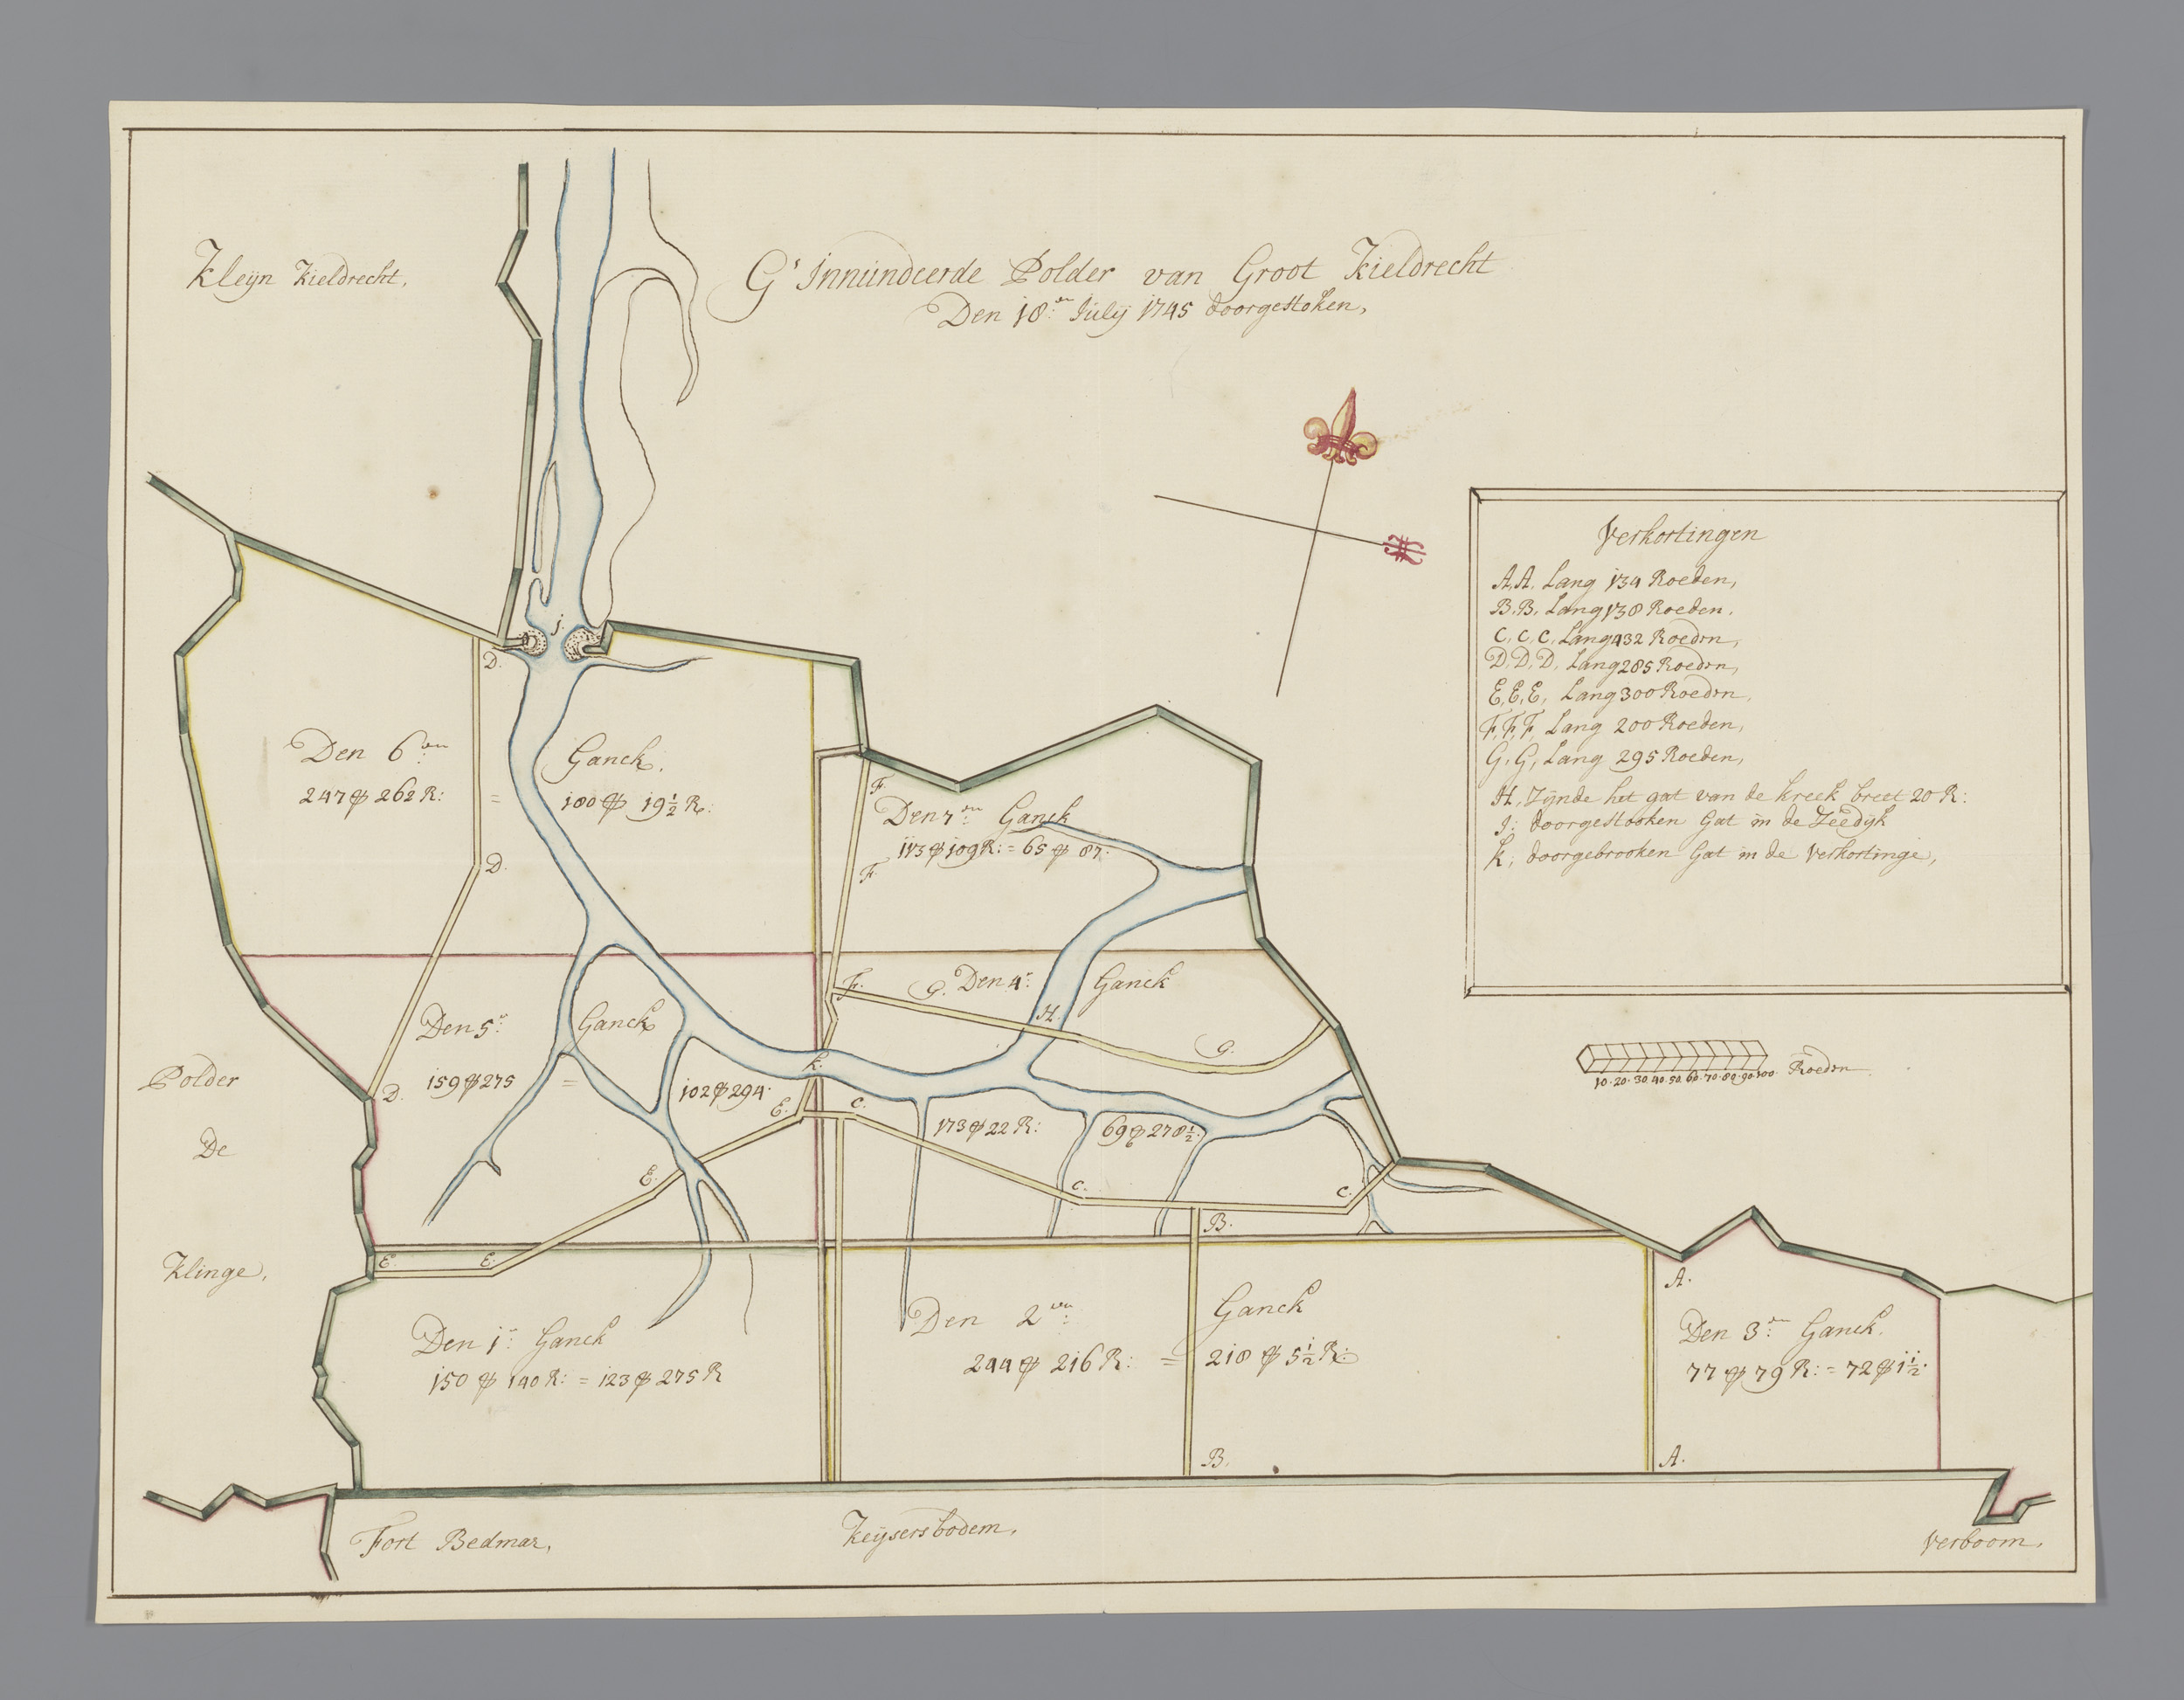 Kleijn Kieldrecht,
G' Innundeerde Polder van Groot Kieldrecht
Den 18:en Julij 1745 doorgestoken,
Verkortingen
A,A, Lang 134 Roeden,
B,B, Lang 138 Roeden,
C, C, C, Lang 432 Roedn,
D, D, D, Lang 285 Roedn,
E, E, E, Lang 300 Roedn,
F, F, F, Lang 200 Roeden,
G, G, Lang 295 Roeden,
H, Zijnde het gat van de kreek breet 20 R:
J: doorgestooken Gat in de Zeedijk
K; doorgebrooken Gat in de Verkortinge,
j.
D.
Den 6:en Ganck,
247 g 262 R: = 180 g 19½ R:
F.
Den 7:en Ganck
113 g 109 R: = 65 g 87.
F.
D.
F.
G. Den 4:e Ganck
H.
G.
Den 5:e Ganck
K.
159 g 275 = 102 g 294.
D.
E. C.
173 g 22 R: 69 g 278½:
E. C. C.
B.
E. E.
Polder
De
Klinge,
10. 20. 30. 40. 50. 60. 70. 80. 90. 100. Roedn
A.
Den 1:e Ganck
150 g 140 R: = 123 g 275 R
Den 2:en Ganck
244 g 216 R: = 218 g 5½ R:
Den 3:en Ganck,
77 g 79 R: = 72 g 1½.
B. A.
Fort Bedmar,
Keijsersbodem,
Verboom,